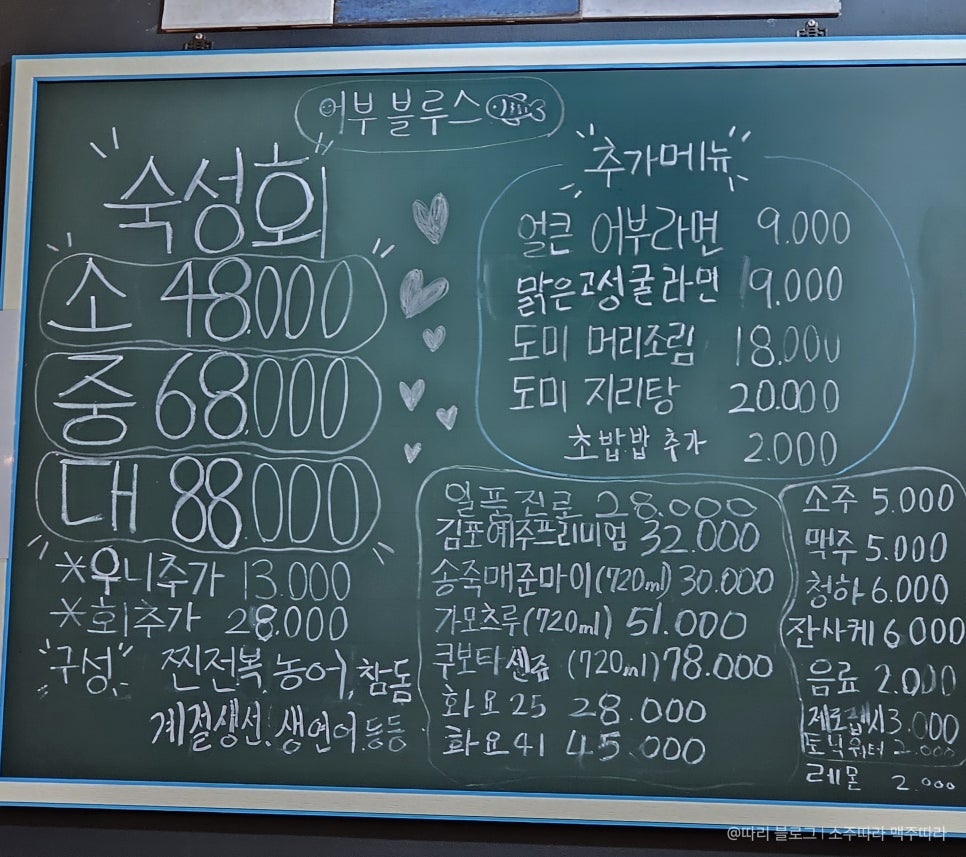 어부 블루스
숙성회
소 48.000
중 68.000
대 88.000
*우니추가 13.000
*회추가 28.000
"구성" 찐전복, 농어, 참돔
계절생선, 생연어, 등등
추가메뉴
얼큰 어부라면 9.000
맑은고성굴라면 9.000
도미 머리조림 18.000
도미 지리탕 20.000
초밥밥 추가 2.000
일품진로 28.000
김포예주프리미엄 32.000
송죽매준마이(720ml) 30.000
가모츠루(720ml) 51.000
쿠보타센쥬 (720ml) 78.000
화요25 28.000
화요41 45.000
소주 5.000
맥주 5.000
청하 6.000
잔사케 6.000
음료 2.000
제로펩시 3.000
토닉워터 2.000
레몬 2.000
@따리 블로그 | 소주따라 맥주따리